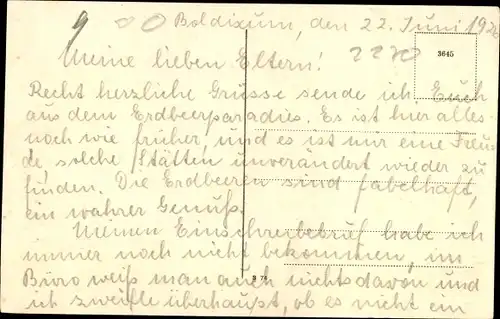 Boldixum, den 22. Juni 192
2220
3645
Meine lieben Eltern!
Recht herzliche Grüsse sende ich Euch
aus dem Erdbeerparadies. Es ist hier alles
noch wie früher, und es ist mir eine Freu-
de solche Stätten unverändert wieder zu
finden. Die Erdbeeren sind fabelhaft,
ein wahrer Genuß.
Meinen Einschreibebrief habe ich
immer noch nicht bekommen, im
Büro weiß man auch nichts davon und
ich zweifle überhaupt, ob es nicht ein